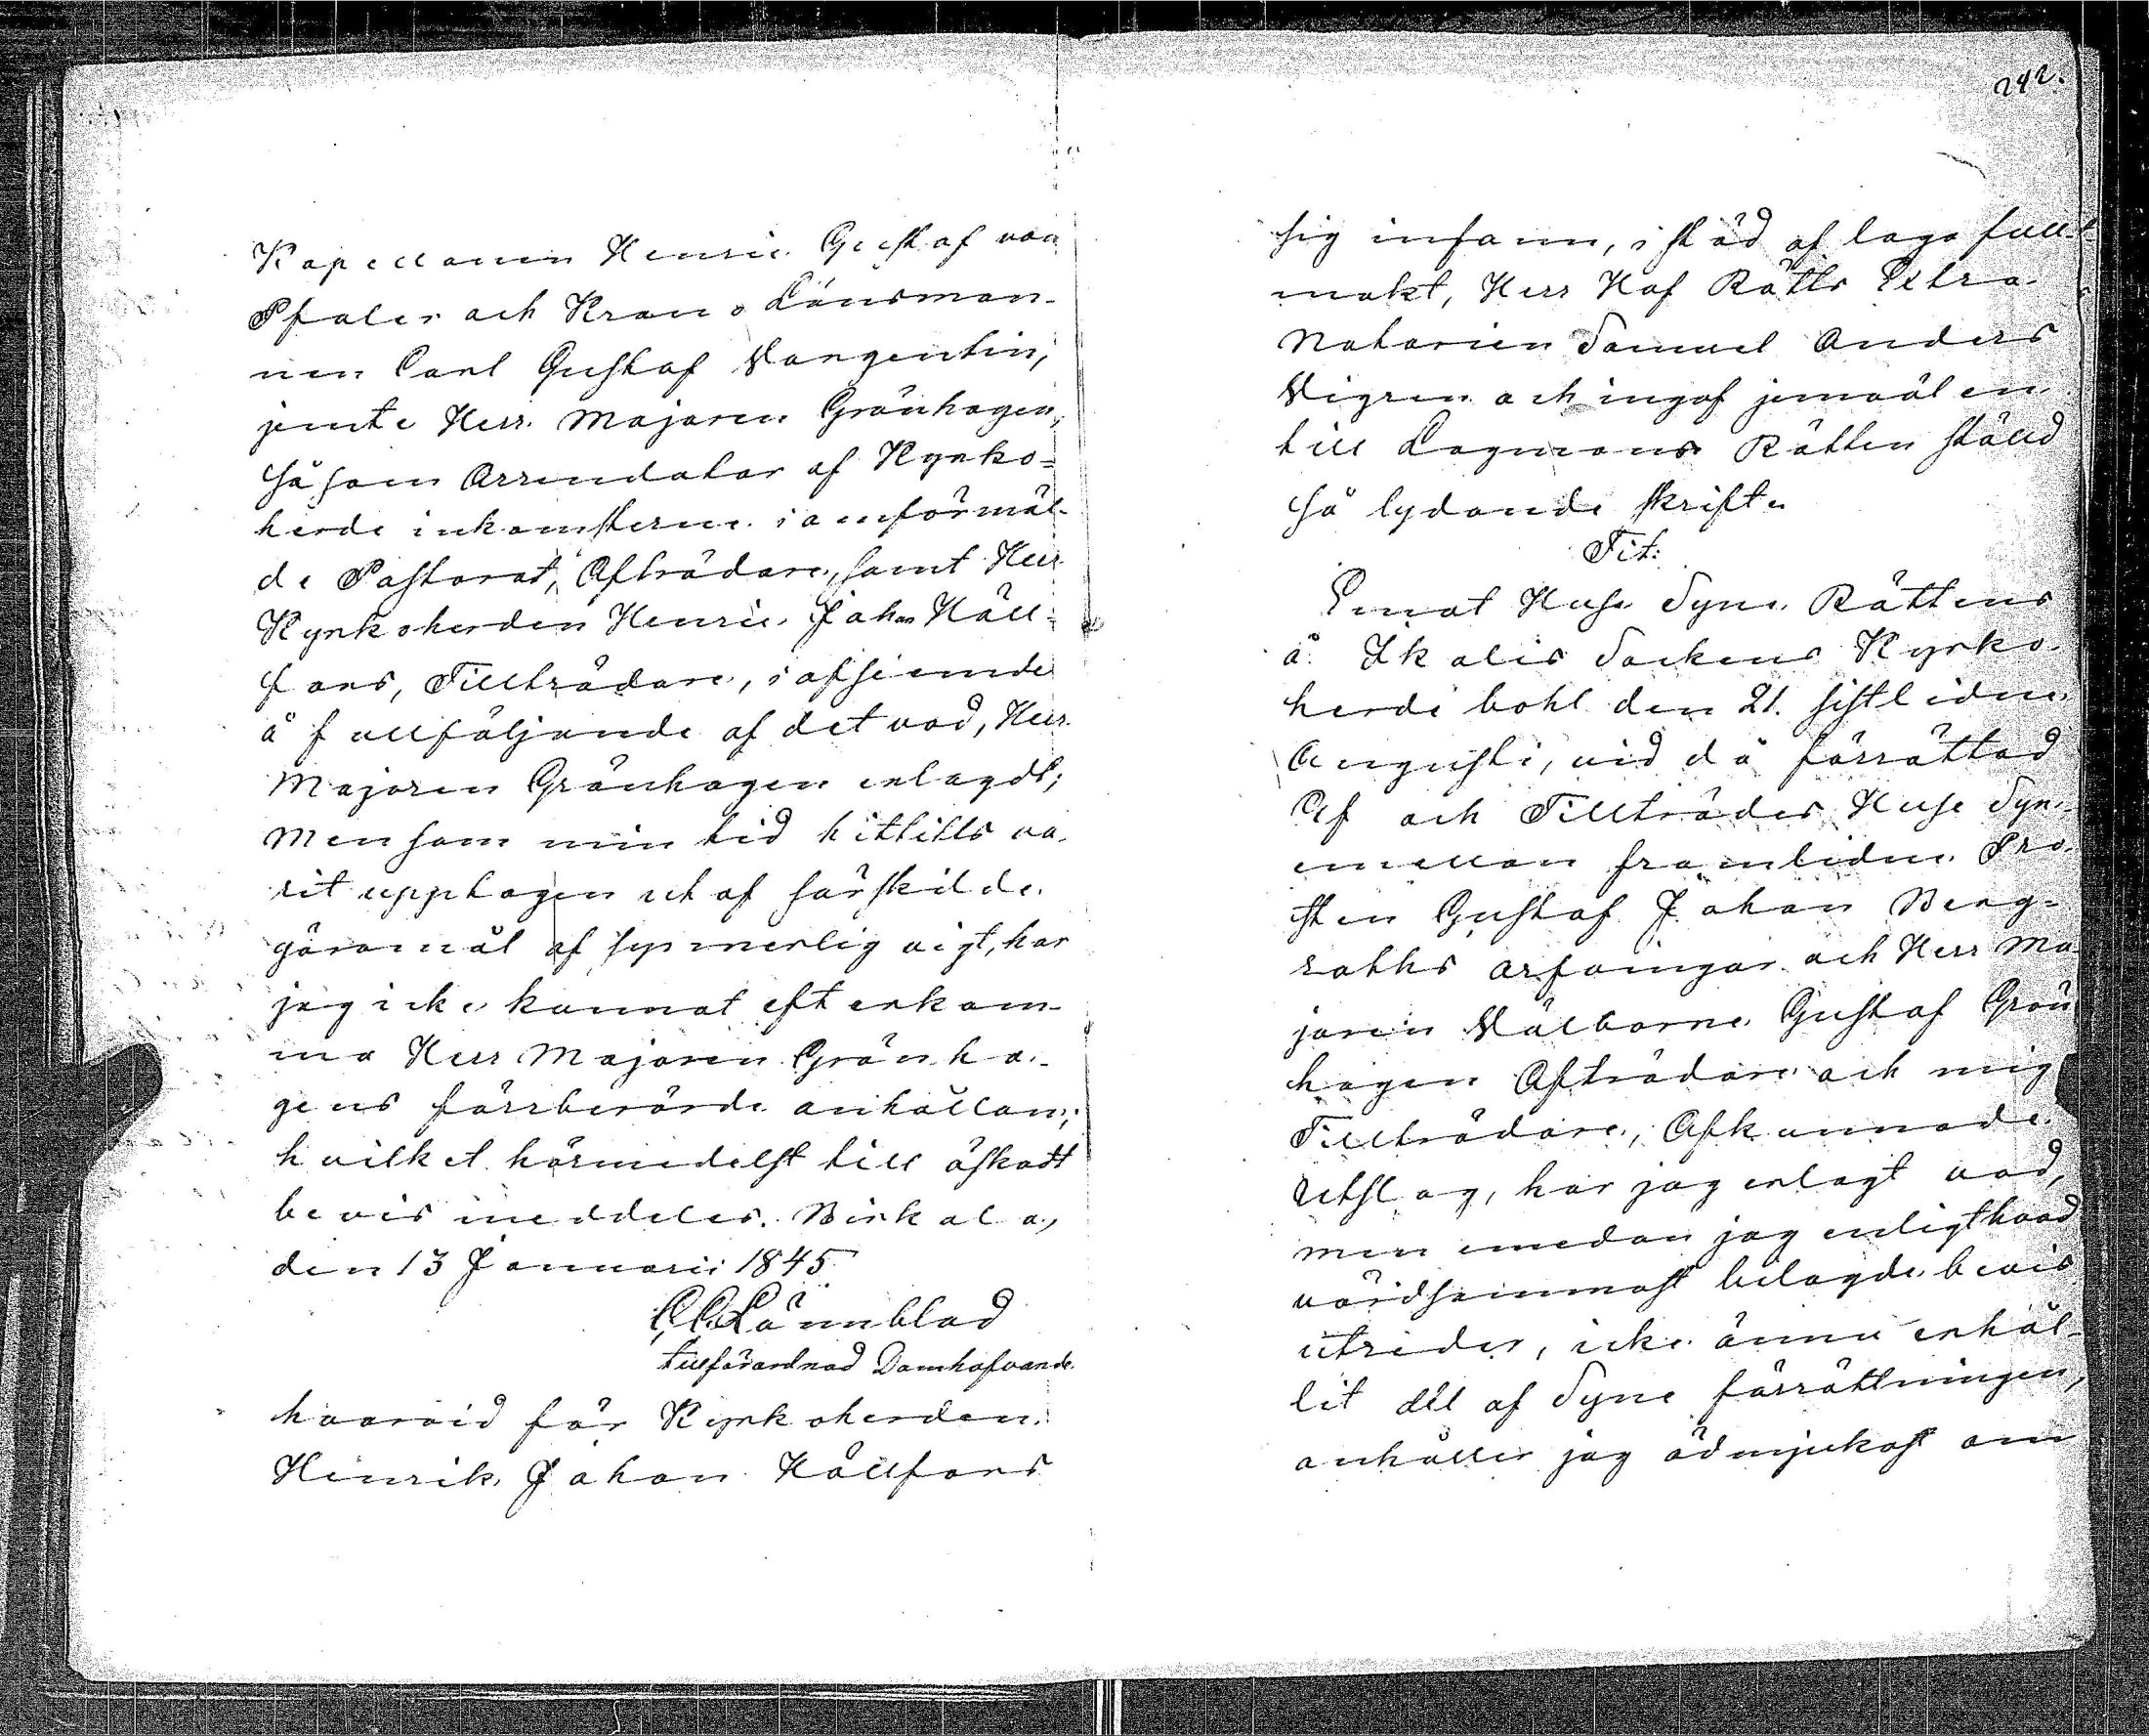 Kapellanen Henric Gustaf von
Pfaler och Krono Länsman-
nen Carl Gustaf Wargentin,
jemte Herr Majoren Grönhagen,
såsom Arrendator af Kyrko-
herde inkomsterne i omförmäl-
de Pastorat, Afträdare, samt Herr
Kyrkoherden Henric Johan Häll-
fors, Tillträdare, i afseende
å fullföljande af det vad, Herr
Majoren Grönhagen erlagdt;
Men som min tid hittills va-
rit upptagen utaf särskilde
göromål af synnerlig vigt, har
jag icke kunnat efterkom-
ma Herr Majoren Grönha-
gens förrberörde anhållan;
hvilket härmedelst till äskadt
bevis meddeles. Birkala,
den 13 Januarii 1845
Lönnblad
tillförordnad Domhafvande.
hvarvid för Kyrkoherden
Henrik Johan Hällfors
242.
sig infann, i stöd af laga full-
makt, Herr Hof Rätts Extra
Notarien Samuel Anders
Wigren och ingaf jemväl en
till Lagmans Rätten ställd
så lydande skrift.
Tit:
Emot Huse Syne Rättens
å Ikalis Sockens Kyrko-
herde bohl den 21. sistlidne
Augusti, vid då förrättad
Af och Tillträdes Huse Syn
emellan framlidne Pro-
sten Gustaf Johan Berg-
roths arfvingar och Herr Ma-
joren Välborne Gustaf Grön
hagen Afträdare och mig
Tillträdare, Afkunnade
Utslag, har jag erlagt vad,
men emedan jag enligt hvad
vördsammast belagde bevis
utreder, icke ännu erhål-
lit dél af Syne förrättningen,
anhåller jag ödmjukast om